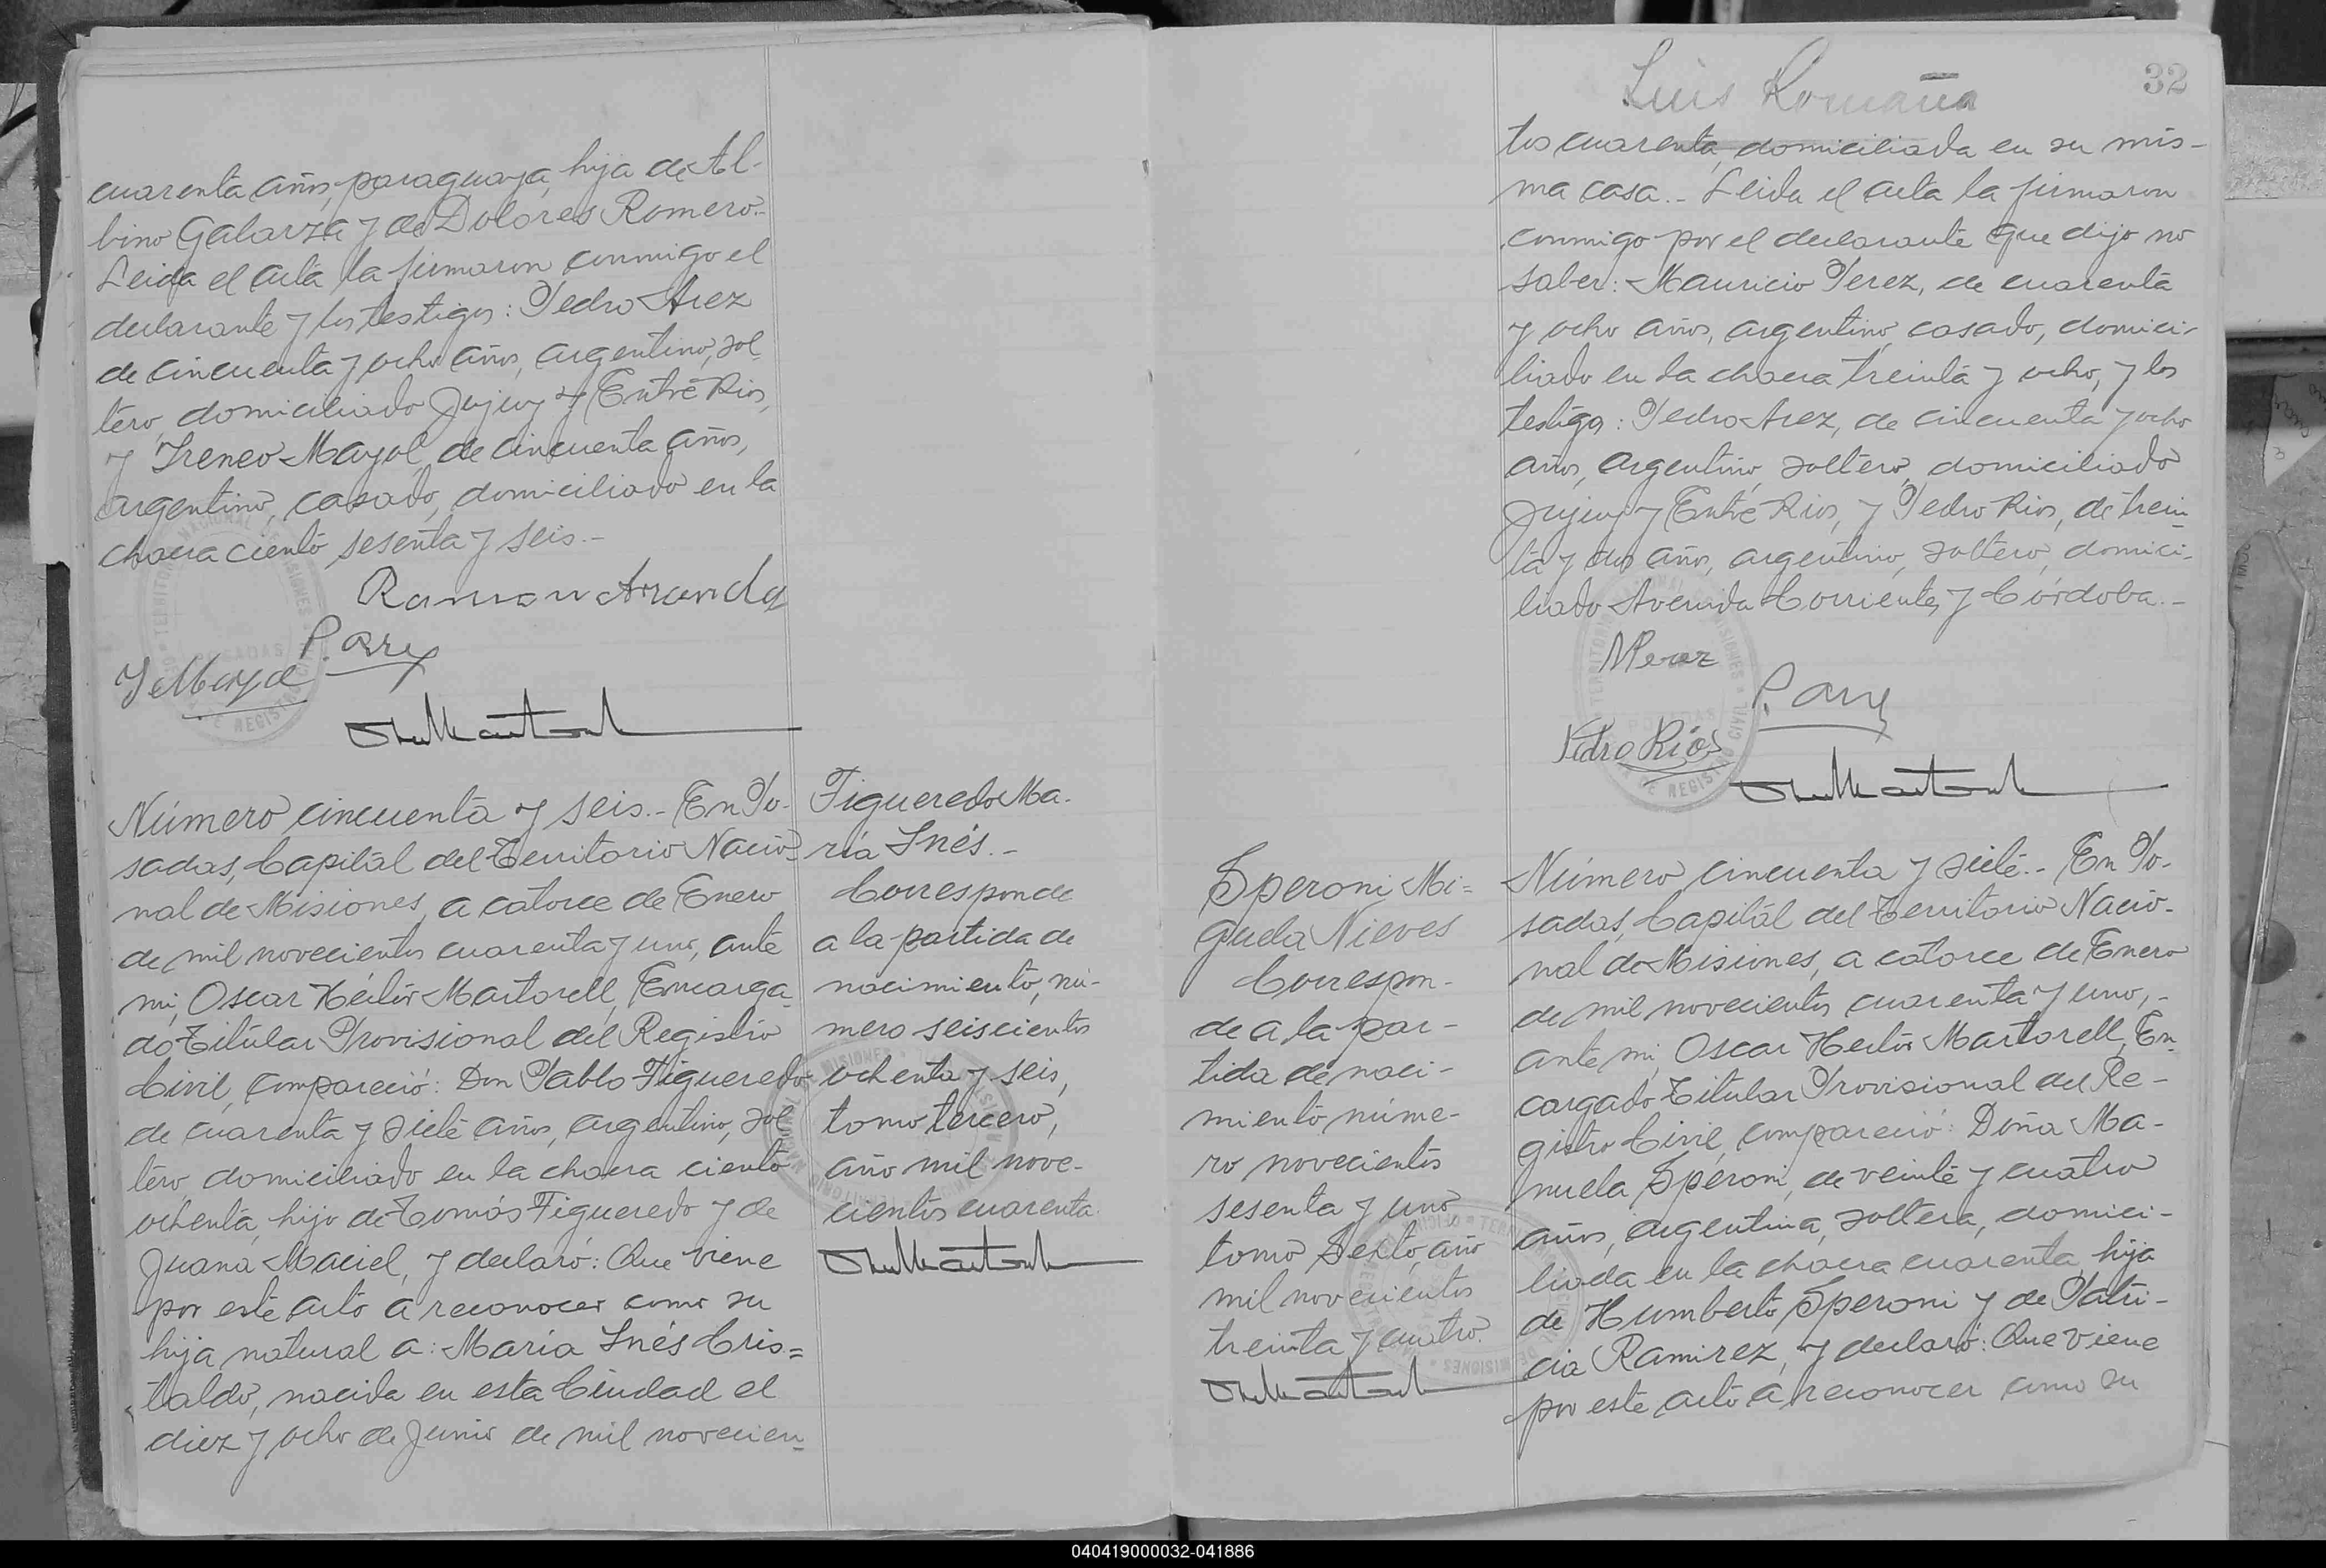 cuarenta años, paraguaya, hija de Al-
bino Galarza y de Dolores Romero.-
Leida el acta, la firmaron conmigo el
declarante y los testigos: Pedro Arez
de cincuenta y ocho años, argentino, sol-
tero, domiciliado Jujuy y Entre Rios,
y Ireneo Mayol, de cincuenta años,
argentino, casado, domiciliado en la
chacra ciento sesenta y seis.-
Ramon Aranda
P. Arez
I Mayol
Número cincuenta y seis.- En Po-
sadas, Capital del Territorio Nacio-
nal de Misiones, a catorce de Enero
de mil novecientos cuarenta y uno, ante
mi, Oscar Héctor Martorell, Encarga-
do Titular Provisional del Registro
Civil, compareció: Don Pablo Figueredo
de cuarenta y siete años, argentino, sol
tero, domiciliado en la chacra ciento
ochenta, hijo de Tomás Figueredo y de
Juana Maciel, y declaró: Que viene
por este acto a reconocer como su
hija natural a: María Inés Cris=
taldo, nacida en esta Ciudad el
diez y ocho de Junio de mil novecien-
Figueredo Ma-
ría Inés.-
Corresponde
a la partida de
nacimiento, nú-
mero seiscientos
ochenta y seis,
tomo tercero,
año mil nove-
cientos cuarenta.
Luis Romaña
32
tos cuarenta, domiciliada en su mis-
ma casa.- Leida el acta la firmaron
conmigo por el declarante que dijo no
saber: Mauricio Perez, de cuarenta
y ocho años, argentino, casado, domici-
liado en la chacra treinta y ocho, y los
testigos: Pedro Arez, de cincuenta y ocho
años, argentino, soltero, domiciliado
Jujuy y Entre Rios, y Pedro Rios, de trein-
ta y dos años, argentino, soltero, domici-
liado Avenida Corrientes y Córdoba.-
M Perez
P. Arez
Pedro Ríos
Speroni Mi=
guela Nieves
Correspon-
de a la par-
tida de naci-
miento núme-
ro novecientos
sesenta y uno
tomo Sexto, año
mil novecientos
treinta y cuatro.
Número cincuenta y siete.- En Po-
sadas, Capital del Territorio Nacio-
nal de Misiones, a catorce de Enero
de mil novecientos cuarenta y uno,-
ante mi, Oscar Hector Martorell, En-
cargado Titular Provisional del Re-
gistro Civil, compareció: Doña Ma-
nuela Speroni, de veinte y cuatro
años, argentina, soltera, domici-
liada en la chacra cuarenta, hija
de Humberto Speroni y de Patri-
cia Ramirez, y declaró: Que viene
por este acto a reconocer como su
040419000032-041886